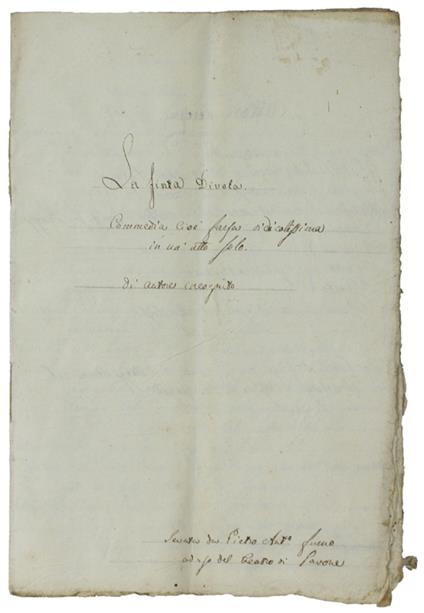 La finta Divota.
Commedia cioè farsa ridicolissima
in un' atto solo.
di autore incognito
da Pietro Ant.o
ad uso del teatro di Pavone